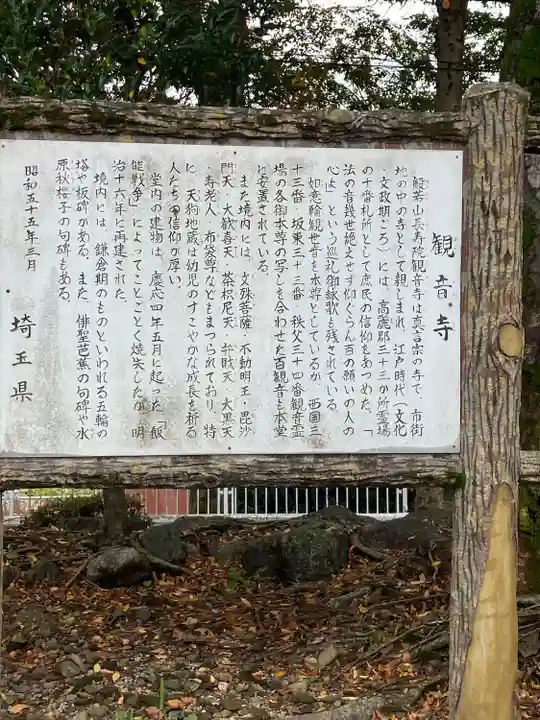 観音寺
般若山長寿院観音寺は真言宗の寺で、市街
地の中の寺として親しまれ、江戸時代(文化
・文政期ごろ)には、高麗郡三十三か所霊場
の十番札所として庶民の信仰をあつめた。「
法の音幾世絶えせず仰ぐらん百の願いの人の
心よ」という巡礼御詠歌も残されている。
如意輪観世音を本尊としているが、西国三
十三番、坂東三十三番、秩父三十四番観音霊
場の各御本尊の写しを合わせた百観音も本堂
に安置されている。
また境内には、文殊菩薩、不動明王、毘沙
門天、大歓喜天、荼枳尼天、弁財天、大黒天
寿老人、布袋尊などもまつられており、特
に、天狗地蔵は幼児のすこやかな成長を祈る
人たちの信仰が厚い。
堂内の建物は、慶応4年五月に起った「飯
能戦争」によってことごとく焼失したが、明
治十六年に再建された。
境内には、鎌倉期のものといわれる五輪の
塔や板碑がある。また、俳聖芭蕉の句碑や水
原秋桜子の句碑もある。
昭和五十五年三月
埼玉県